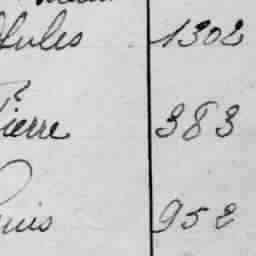 Jules 1302
Pierre 383
Louis 952